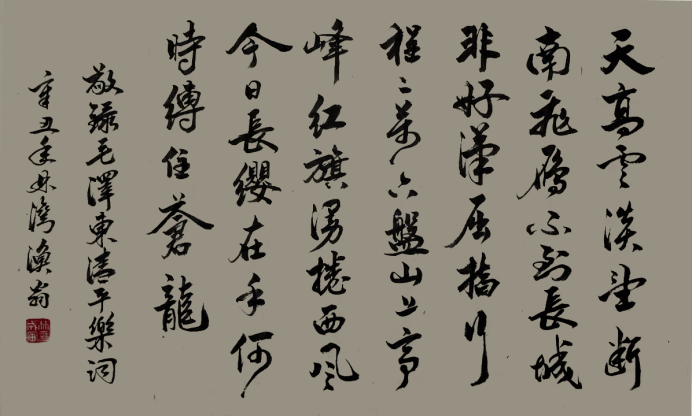 天高雲淡望断
南飛鴈不到長城
非好漢屈指行
程二萬六盤山上高
峰紅旗漫捲西風
今日長纓在手何
時縛住蒼龍
敬錄毛澤東清平樂詞
辛丑年灣翁